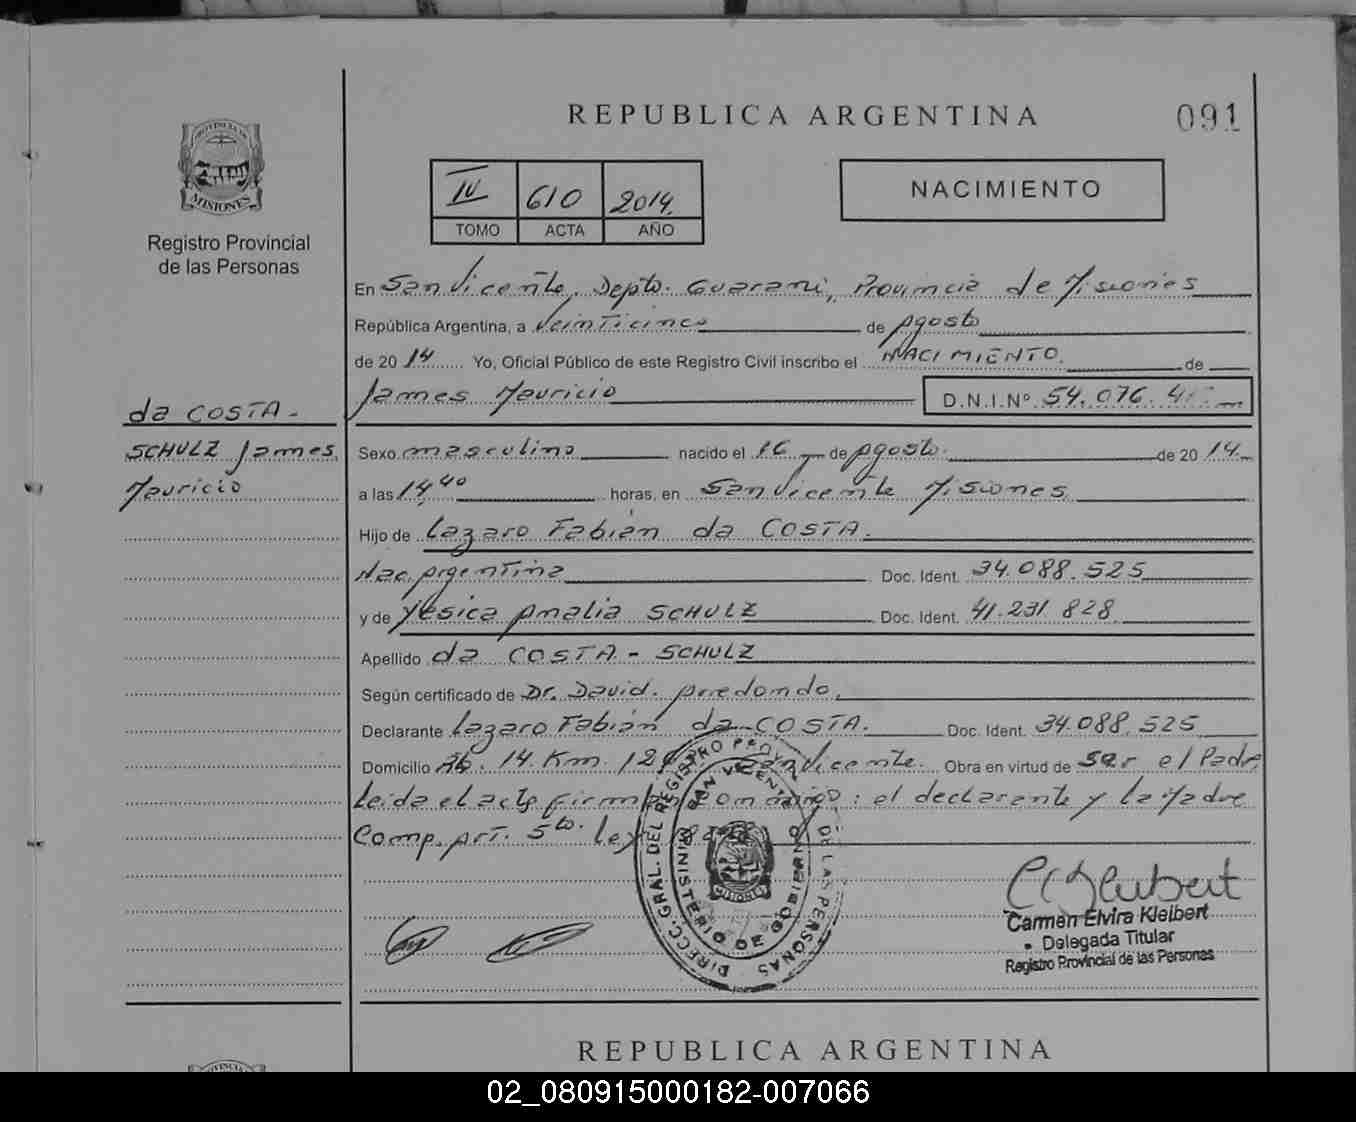 REPUBLICA ARGENTINA
091
PROVINCIA DE
MISIONES
Registro Provincial
de las Personas
IV 610 2014
TOMO ACTA AÑO
NACIMIENTO
En San Vicente, Depto. Guarani, Provincia de Misiones
República Argentina, a Veinticinco de Agosto
de 20 14 Yo, Oficial Público de este Registro Civil inscribo el NACIMIENTO. de
James Mauricio D.N.I.Nº 54.076.
da COSTA -
SCHULZ James
Mauricio
Sexo masculino nacido el 16 de Agosto de 20 14
a las 14,40 horas, en San Vicente Misiones
Hijo de Lazaro Fabián da COSTA.
Nac. Argentina Doc. Ident. 34.088.525
y de Yesica Amalia SCHULZ Doc. Ident. 41.231.828
Apellido da COSTA - SCHULZ
Según certificado de Dr. David Arredondo.
Declarante Lazaro Fabián da COSTA. Doc. Ident. 34.088.525
Domicilio Km. San Vicente. Obra en virtud de ser el Padre
Leida el acta firman conmigo: el declarante y la Madre
Comp. Art. 5to. Ley
DIRECC. GRAL. DEL REGISTRO PROV. DE LAS PERSONAS
SAN VICENTE
MINISTERIO DE GOBIERNO
MISIONES
Carmen Elvira Kleibert
Delegada Titular
Registro Provincial de las Personas
REPUBLICA ARGENTINA
02_080915000182-007066